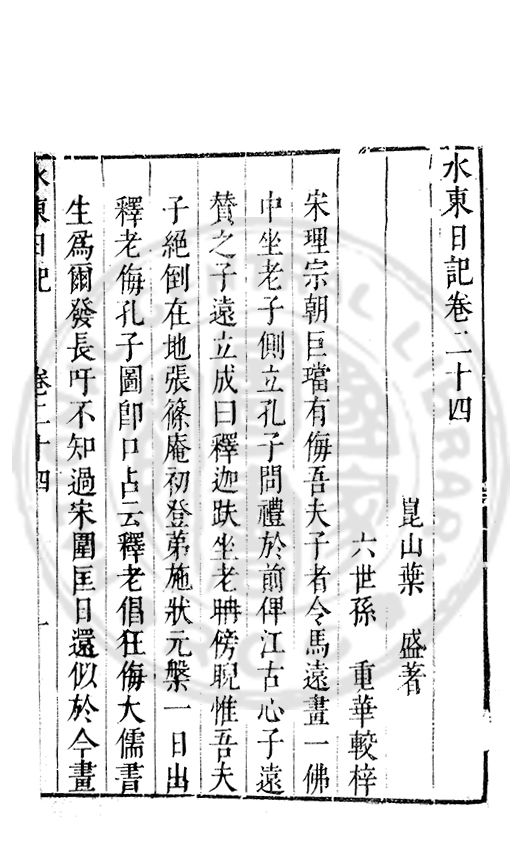 水東日記卷二十四
崑山葉　盛著
六世孫　重華較梓
宋理宗朝巨璫有侮吾夫子者令馬遠畫一佛
中坐老子側立孔子問禮於前俾江古心子遠
贊之子遠立成曰釋迦趺坐老聃傍睨惟吾夫
子絕倒在地張篠庵初登第施狀元槃一日出
釋老侮孔子圖卽口占云釋老倡狂侮大儒書
生爲爾發長吁不知過宋圍匡日還似於今畫
水東日記　卷二十四　一